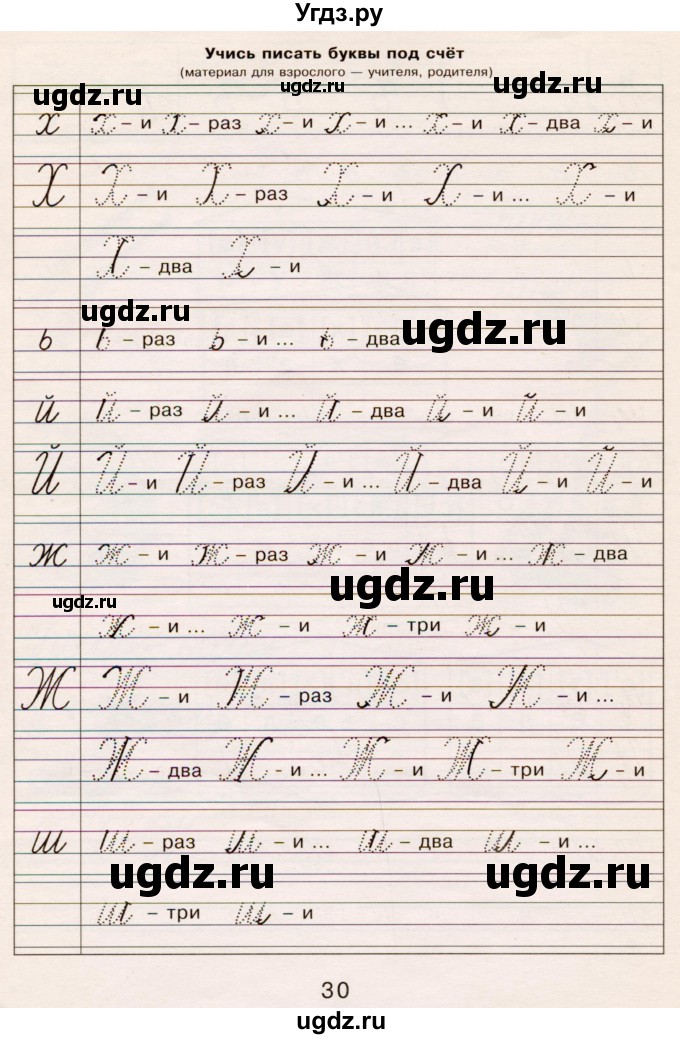 Угдз.ру
Учись писать буквы под счёт
(материал для взрослого — учителя, родителя)
ugdz.ru ugdz.ru ugdz.ru
х х – и х – раз х – и х – и ... х – и х – два х – и
Х Х – и Х – раз Х – и Х – и ... Х – и
Х – два Х – и
ugdz.ru ugdz.ru
ь ь – раз ь – и ... ь – два
й й – раз й – и ... й – два й – и й – и
Й Й – и Й – раз Й – и ... Й – два Й – и Й – и
ж ж – и ж – раз ж – и ж – и ... ж – два
ugdz.ru ugdz.ru
ж – и ... ж – и ж – три ж – и
Ж Ж – и Ж – раз Ж – и Ж – и ...
Ж – два Ж – и ... Ж – и Ж – три Ж – и
ш ш – раз ш – и ... ш – два ш – и ...
ugdz.ru ugdz.ru
ш – три ш – и
30
ugdz.ru